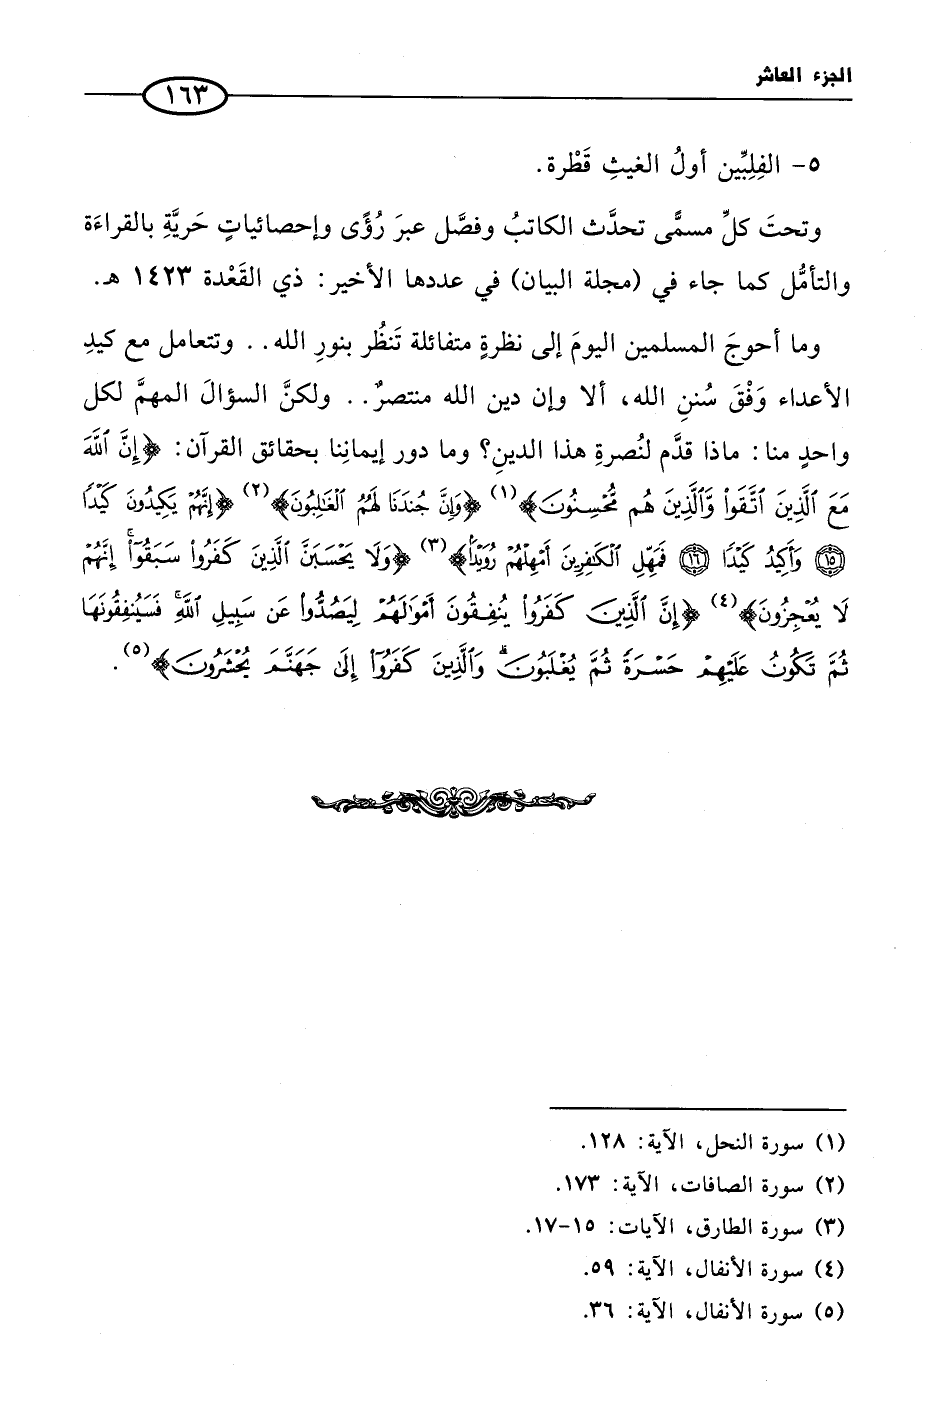 الجزء العاشر
١٦٣
٥- الفِلِبِّين أولُ الغيثِ قَطْرة.
وتحتَ كلِّ مسمًّى تحدَّث الكاتبُ وفصَّل عبرَ رُؤًى وإحصائياتٍ حَريَّةِ بالقراءَة
والتأمُّل كما جاء في (مجلة البيان) في عددها الأخير: ذي القَعْدة ١٤٢٣ هـ.
وما أحوجَ المسلمين اليومَ إلى نظرةٍ متفائلة تَنظُر بنورِ الله.. وتتعامل مع كيدِ
الأعداء وَفْقَ سُننِ الله، ألا وإن دين الله منتصرٌ.. ولكنَّ السؤالَ المهمَّ لكل
واحدٍ منا: ماذا قدَّم لنُصرةِ هذا الدينِ؟ وما دور إيمانِنا بحقائق القرآن: ﴿إِنَّ ٱللَّهَ
مَعَ ٱلَّذِينَ ٱتَّقَوا۟ وَّٱلَّذِينَ هُم مُّحْسِنُونَ﴾(١) ﴿وَإِنَّ جُندَنَا لَهُمُ ٱلْغَٰلِبُونَ﴾(٢) ﴿إِنَّهُمْ يَكِيدُونَ كَيْدًا
١٥ وَأَكِيدُ كَيْدًا ١٦ فَمَهِّلِ ٱلْكَٰفِرِينَ أَمْهِلْهُمْ رُوَيْدًۢا﴾(٣) ﴿وَلَا يَحْسَبَنَّ ٱلَّذِينَ كَفَرُوا۟ سَبَقُوٓا۟ ۚ إِنَّهُمْ
لَا يُعْجِزُونَ﴾(٤) ﴿إِنَّ ٱلَّذِينَ كَفَرُوا۟ يُنفِقُونَ أَمْوَٰلَهُمْ لِيَصُدُّوا۟ عَن سَبِيلِ ٱللَّهِ ۚ فَسَيُنفِقُونَهَا
ثُمَّ تَكُونُ عَلَيْهِمْ حَسْرَةً ثُمَّ يُغْلَبُونَ ۗ وَٱلَّذِينَ كَفَرُوٓا۟ إِلَىٰ جَهَنَّمَ يُحْشَرُونَ﴾(٥).
(١) سورة النحل، الآية: ١٢٨.
(٢) سورة الصافات، الآية: ١٧٣.
(٣) سورة الطارق، الآيات: ١٥-١٧.
(٤) سورة الأنفال، الآية: ٥٩.
(٥) سورة الأنفال، الآية: ٣٦.